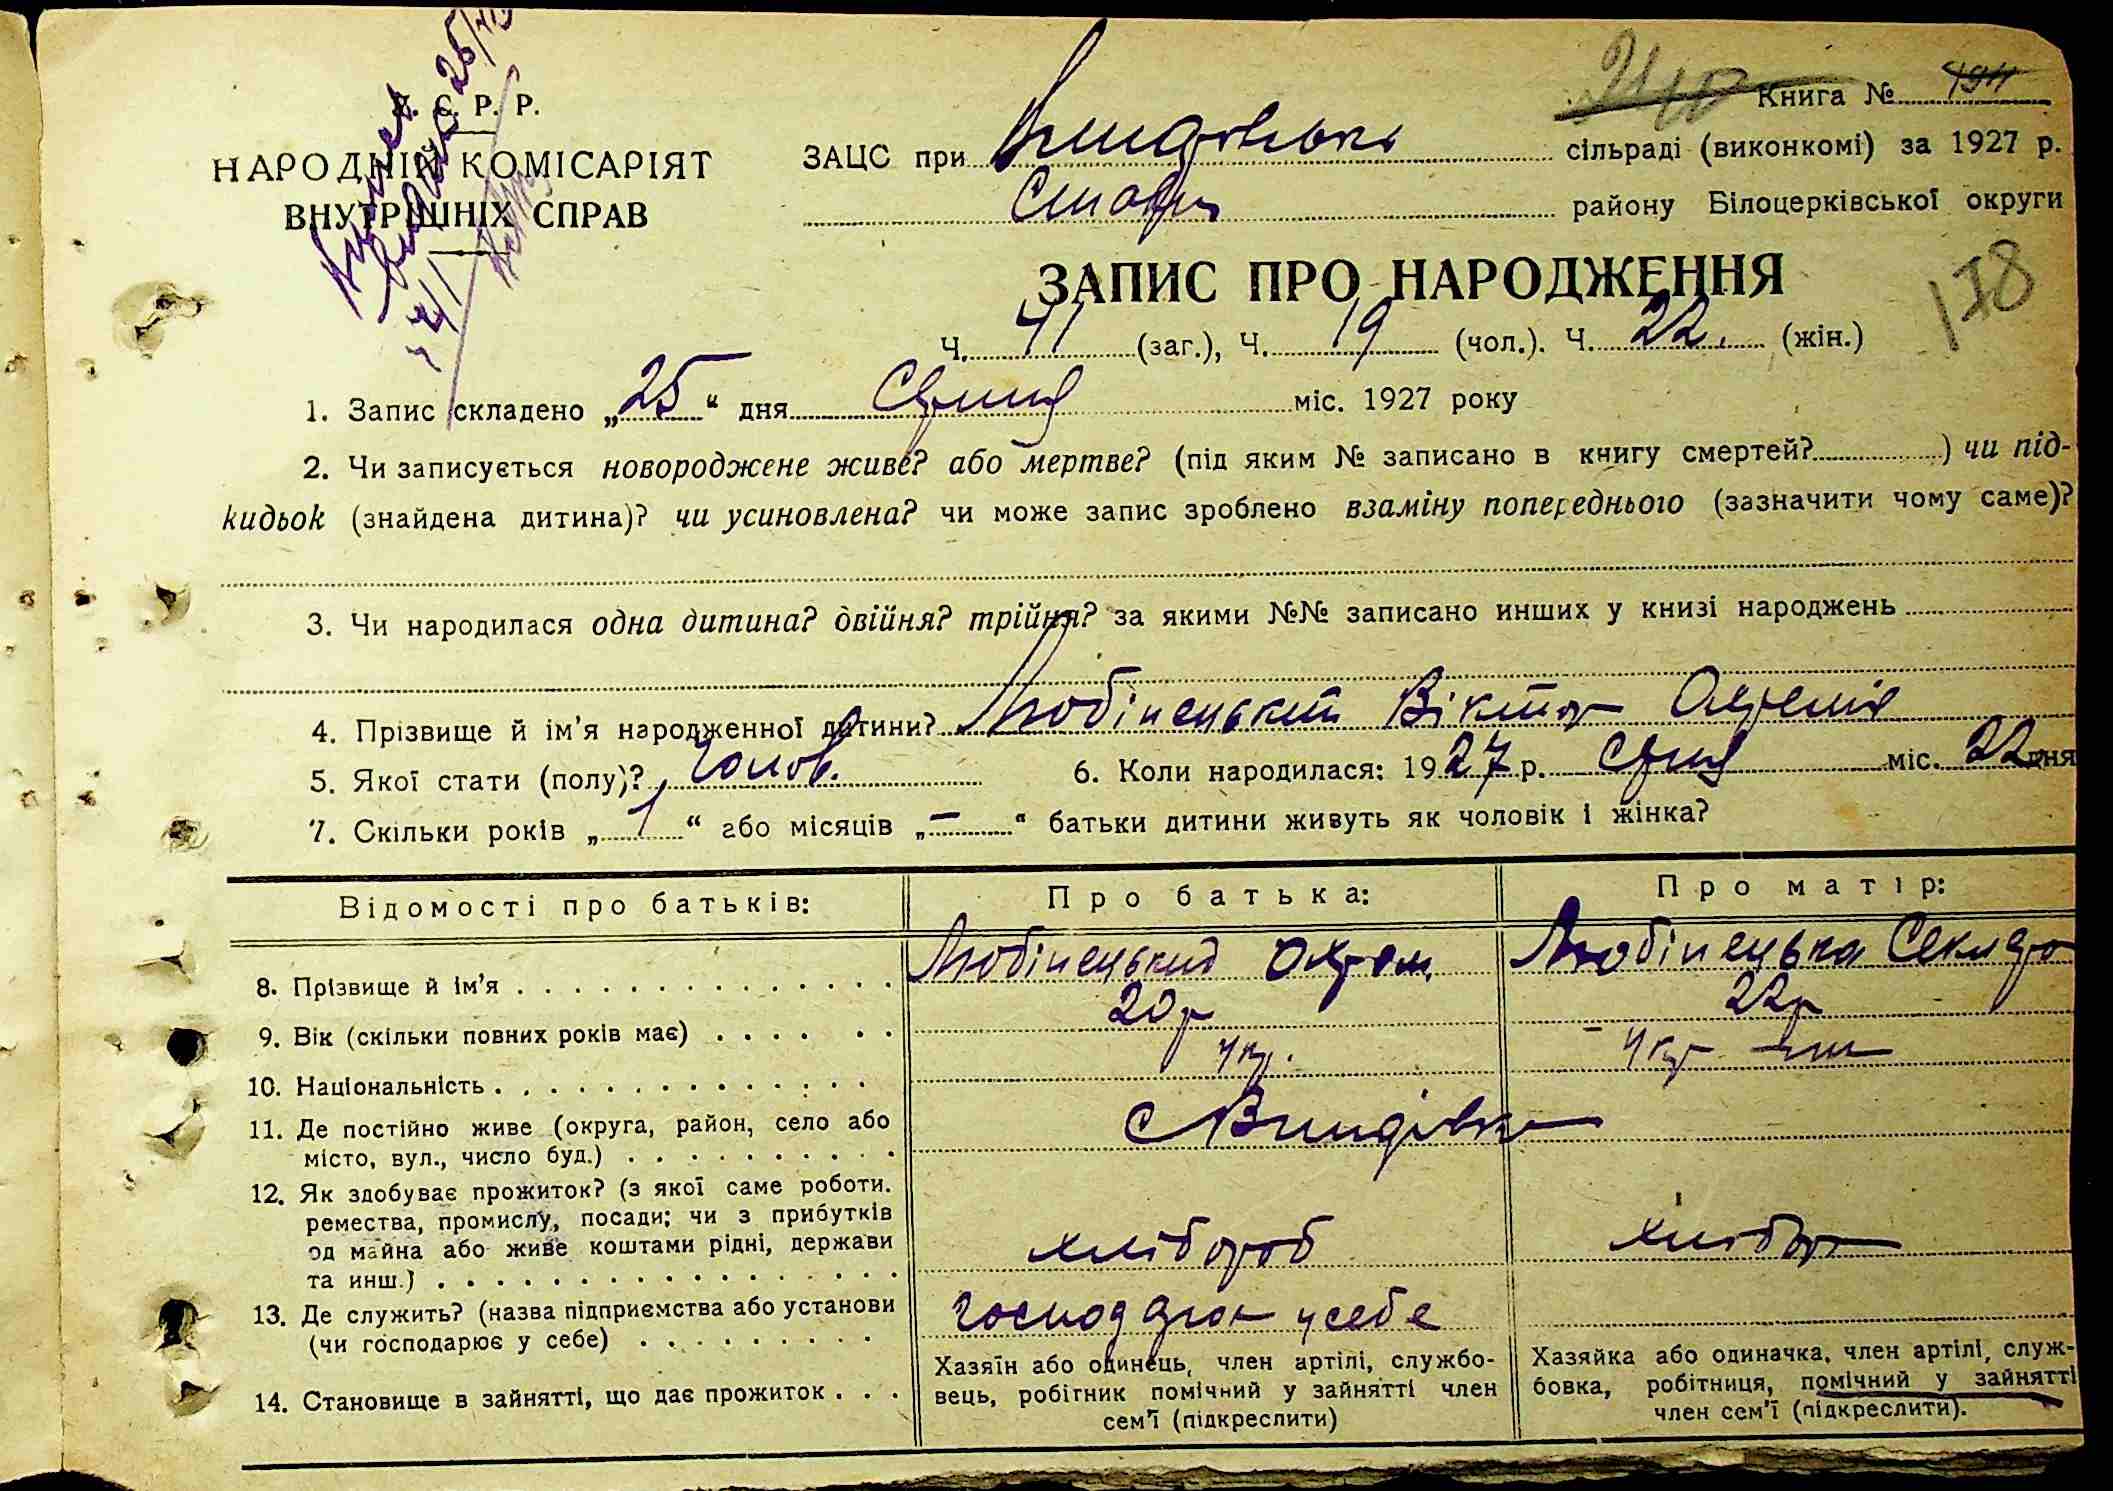 У. С. Р. Р.
НАРОДНІЙ КОМІСАРІЯТ
ВНУТРІШНІХ СПРАВ
Книга № 1911
ЗАЦС при сільраді (виконкомі) за 1927 р.
району Білоцерківської округи
ЗАПИС ПРО НАРОДЖЕННЯ
178
Ч. 41 (заг.), Ч. 19 (чол.). Ч. 22. (жін.)
1. Запис складено „25“ дня Серпня міс. 1927 року
2. Чи записується новороджене живе? або мертве? (під яким № записано в книгу смертей?) чи під-
кидьок (знайдена дитина)? чи усиновлена? чи може запис зроблено взаміну попереднього (зазначити чому саме)?
3. Чи народилася одна дитина? двійня? трійня? за якими №№ записано инших у книзі народжень
4. Прізвище й ім'я народженної дитини? Любінецький Віктор
5. Якої стати (полу)? чолов. 6. Коли народилася: 1927 р. Серпня міс. 22 дня
7. Скільки років „1“ або місяців „—“ батьки дитини живуть як чоловік і жінка?
Відомості про батьків: Про батька: Про матір:
8. Прізвище й ім'я Любінецький Охрем Любінецька Секлета
9. Вік (скільки повних років має) 20р 22р
10. Національність укр. укр
11. Де постійно живе (округа, район, село або
місто, вул., число буд.)
12. Як здобуває прожиток? (з якої саме роботи.
ремества, промислу, посади; чи з прибутків
од майна або живе коштами рідні, держави
та инш.) хлібороб хлібор
13. Де служить? (назва підприємства або установи
(чи господарює у себе) господарює у себе
14. Становище в зайнятті, що дає прожиток
Хазяїн або одинець, член артілі, службо-
вець, робітник помічний у зайнятті член
сем'ї (підкреслити)
Хазяйка або одиначка, член артілі, служ-
бовка, робітниця, помічний у зайнятті
член сем'ї (підкреслити).